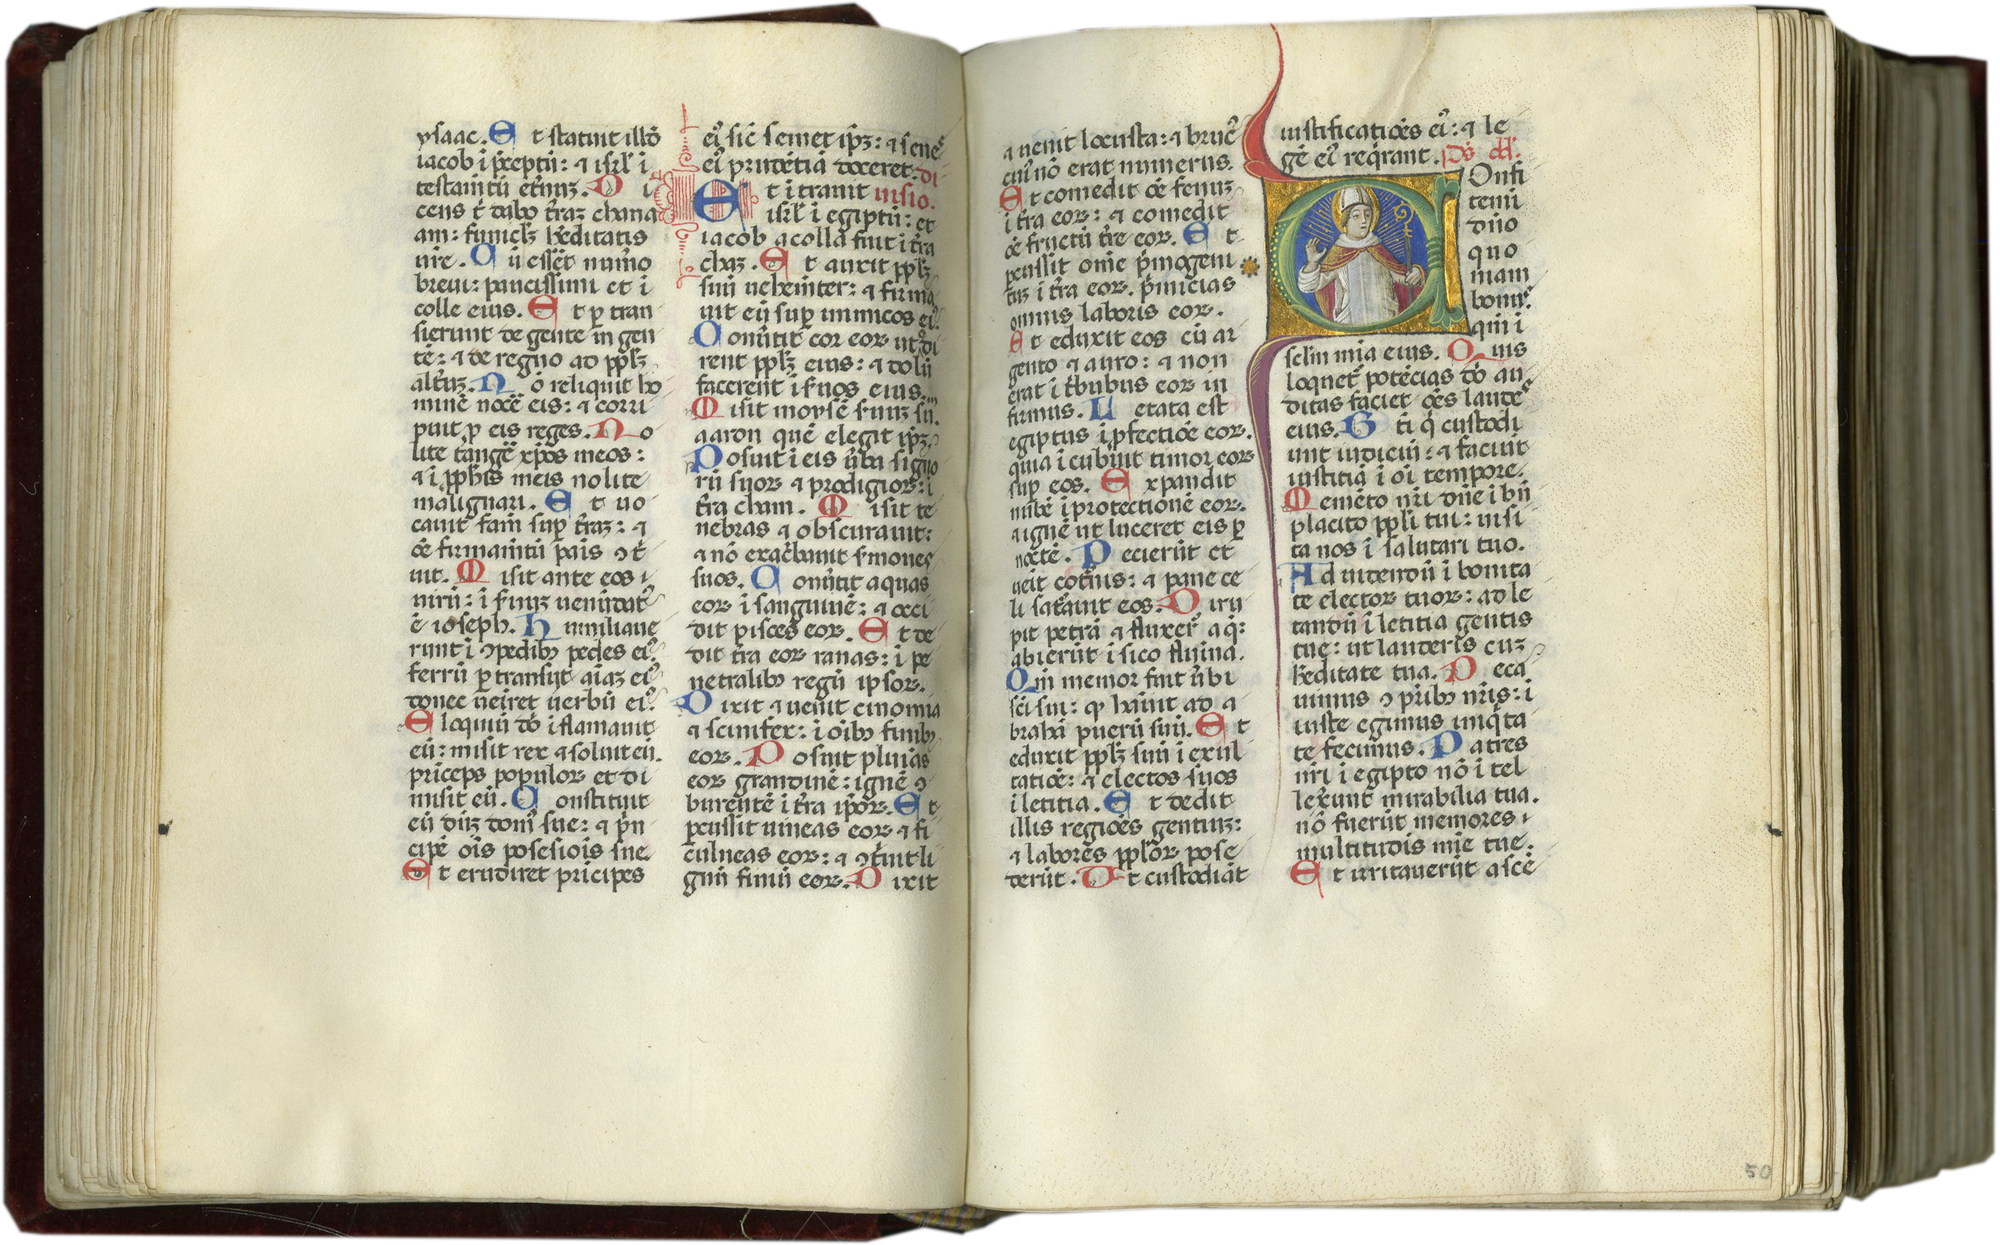 ysaac. Et statuit illō
iacob ī p̄ceptū: ⁊ isrl̄ ī
testam̄tū et̄nuʒ. Dī
cens t̄ dabo t̄raʒ chana
am: funicl̄ʒ h̄editatis
nr̄e. Cū essēt num̄o
breui: paucissimi et ī
colle eius. Et p̱ tran
sierunt de gente in gen
tē: ⁊ de regno ad pp̄lʒ
alt̄uʒ. Nō reliquit ho
minē nocē eis: ⁊ corri
puit p̱ eis reges. No
lite tangē xp̄os meos:
⁊ ī pp̄hīs meis nolite
malignari. Et uo
cauit fam̄ sup̱ t̄raʒ: ⁊
oē firmam̄tū pāis ꝯt̄
uit. Misit ante eos
uirū: ī s̄uuʒ uenūdat᷒
ē ioseph. Humiliaue
runt ī ꝯpedibꝫ pedes ei᷒
ferrū p̱transīit aīaʒ ei᷒
donec ueīret uerbū ei᷒.
Eloquiū dō īflamauit
eū: misit rex ⁊ soluit eū.
prīceps populoꝝ et di
misit eū. Constituit
eū dn̄ʒ dom᷒ sue: ⁊ p̄n
cipē oīs posesiōis sue.
Et erudiret prīcipes
ei᷒ sic̄ semet ip̄ʒ: ⁊ sene᷒
ei᷒ prudētiā doceret. di
Et ītrauit uisio.
isrl̄ ī egiptū: et
iacob acolla fuit ī t̄ra
chaʒ. Et auxit pp̄lʒ
suū ueheīnter: ⁊ firma
uit eū sup̱ inimicos ei᷒.
Conūtit cor eoꝝ ut odi
rent pp̄lʒ eius: ⁊ dolū
facerent ī s̄uos eius.
Misit moysē s̄uuʒ su.
aaron quē elegit ip̄ʒ.
Posuit ī eis ūba signo
rū suoꝝ ⁊ prodigioꝝ: ī
t̄ra cham. Misit te
nebras ⁊ obscurauit:
⁊ nō exac̄bauit s̄mones
suos. Conūtit aquas
eoꝝ ī sanguinē: ⁊ occi
dit pisces eoꝝ. Et de
dit t̄ra eoꝝ ranas: ī pe
netralibꝫ regū ipsoꝝ.
Dixit ⁊ uenit cinomia
⁊ scinifex: ī oībꝫ finibꝫ
eoꝝ. Posuit pluuias
eoꝝ grandinē: ignē ꝯ
burentē ī t̄ra ip̄oꝝ. Et
p̱cussit uineas eoꝝ ⁊ fi
culneas eoꝝ: ⁊ ꝯt̄uit li
gnū finiū eoꝝ. Dixit
⁊ uenit locusta: ⁊ bruc᷒
cui᷒ nō erat numerus.
Et comedit oē fenuʒ
ī t̄ra eoꝝ: ⁊ comedit
oē fructū t̄re eoꝝ. Et
p̱cussit om̄e p̄mogeni
tuʒ ī t̄ra eoꝝ. p̄micias
omnis laboris eoꝝ.
Et eduxit eos cū ar
gento ⁊ auro: ⁊ non
erat ī t̄bubus eoꝝ in
firmus. Letata est
egiptus ī p̱fectiōe eoꝝ.
quia īcubuit timor eoꝝ
sup̱ eos. Expandit
nubē ī protectionē eoꝝ.
⁊ ignē ut luceret eis p̱
noctē. Pecierūt et
uēit cotn̄ix: ⁊ pane ce
li sat̄auit eos. Diru
pit petrā ⁊ fluxer̄ aq̄:
abierūt ī sico fluīna.
Qm̄ memor fuit ūbi
sc̄i sui: qꝫ h̄uit ad a
brahā puerū suū. Et
eduxit pp̄lʒ suū ī exul
tatiōe: ⁊ electos suos
ī letitia. Et dedit
illis regiōes gentiuʒ:
⁊ laborēs pp̄loꝝ pose
derūt. Vt custodiāt
iustificatiōes ei᷒: ⁊ le
gē ei᷒ reqīrant. Ps̄ dd̄.
Onfi
temī
dn̄o
quo
niam
bonus.
qm̄ ī
sclm̄ mīa eius. Quis
loquet̄ potēcias dō au
ditas faciet oēs laude᷒
eius. Bt̄i q̄ custodi
unt iudiciū: ⁊ faciunt
iustitiā ī oī tempore.
Memēto nr̄i dn̄e ī bn̄
placito pp̄li tui: uisi
ta nos ī salutari tuo.
Ad uidendū ī bonita
te electoꝝ tuoꝝ: ad le
tandū ī letitia gentis
tue: ut lauderis cuʒ
h̄editate tua. Peca
uimus ꝯ pr̄ibꝫ nr̄is: ī
iuste egimus iniq̄ta
te fecimus. Patres
nr̄i ī egipto nō ītel
lex̄unt mirabilia tua.
nō fuerūt memores
multitudīs mīe tue:
Et irritauerūt ascē
50